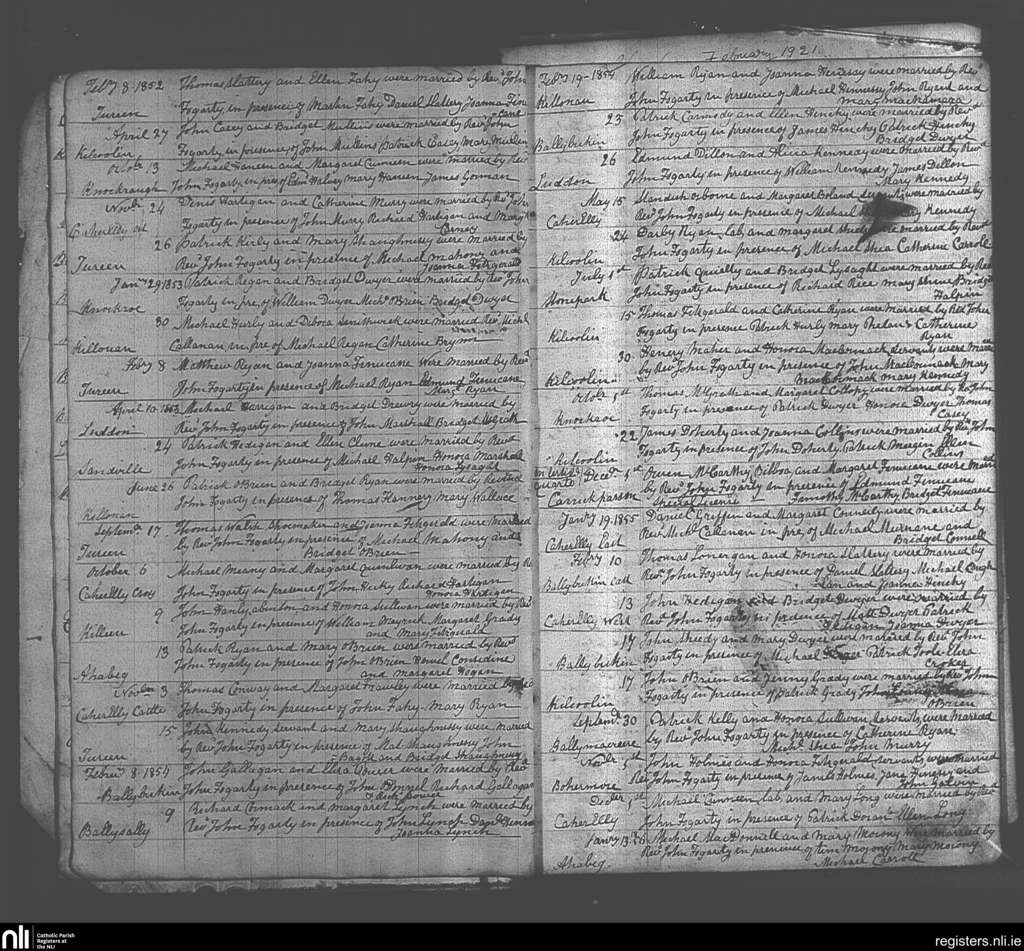 Feby 8 1852 Thomas Slattery and Ellen Fahy were married by Revd John
Tureen Fogarty in presence of Martin Fahy Daniel Slattery Joanna
April 27 John Casey and Bridget Mullins were married by Revd John
Kilcoolin Fogarty in presence of John Mullins Patrick Casey Mary Mullins
Octobr 13 Michael Haneen and Margaret Cunneen were married by Revd
Knockraugh John Fogarty in pres of Edmd Halvey Mary Haneen James Gorman
Novbr 24 Denis Hartigan and Catherine Murry were married by Revd John
Fogarty in presence of John Murry Richard Hartigan and Mary
26 Patrick Kirly and Mary Shaughnessy were married by
Tureen Revd John Fogarty in presence of Michael Mahony and
Joanna Fitzgerald
Jany 29 1853 Patrick Regan and Bridget Dwyer were married by Revd John
Knockroe Fogarty in pre of William Dwyer Michl O'Brien Bridget Dwyer
30 Michael Hurly and Debora Smithwick were married Revd Michl
Killonan Callanan in pre of Michael Regan Catherine Brynn
Feby 8 Matthew Ryan and Joanna Finucane were married by Revd
Tureen John Fogarty in presence of Michael Ryan Edmund Finucane
Margt Ryan
April 10 1853 Michael Harrigan and Bridget Drewry were married by
Luddon Revd John Fogarty in presence of John Marshall Bridget McGrath
24 Patrick Hedigan and Ellen Clune were married by Revd
Sandville John Fogarty in presence of Michael Halpin Honora Marshall
Honora Lysaght
June 26 Patrick O'Brien and Bridget Ryan were married by Revernd
Killonan John Fogarty in presence of Thomas Hannery Mary Wallace
Septembr 17 Thomas Walsh Shoemaker and Joanna Fitzgerald were married
Tureen by Revd John Fogarty in presence of Michael Mahony and
Bridget O'Brien
October 6 Michael Meany and Margaret Quinlivan were married by Revd
CaherElly Cross John Fogarty in presence of John Hicky Richard Hartigan
Honora Hartigan
9 John Hanly abinton and Honora Sullivan were married by Revd
Killeen John Fogarty in presence of William Wayrick Margaret Grady
and Mary Fitzgerald
13 Patrick Ryan and Mary O'Brien were married by Revd
Ahabeg John Fogarty in presence of John O'Brien Daniel Considine
and Margaret Hogan
Novbr 3 Thomas Conway and Margaret Frawley were married by Revd
CaherElly Castle John Fogarty in presence of John Fahy Mary Ryan
15 John Kennedy servant and Mary Shaughnessy were married
Tureen by Revd John Fogarty in presence of Mat Shaughnessy John
and Bridget Shaughnessy
Febru 8 1854 John Gallagan and Eliza Power were married by Revd
Ballybrickin John Fogarty in presence of John Richard Gallagan
Eliza Power
9 Richard Cormack and Margaret Lynch were married by
Ballysally Revd John Fogarty in presence of John Lynch David
Joanna Lynch
February 1921
Feby 19-1854 William Ryan and Joanna Henessy were married by Revd
Killonan John Fogarty in presence of Michael Hennessy John Ryan and
Mary Mackamara
23 Patrick Carmody and Ellen Hinchy were married by Revd
Ballybrickin John Fogarty in presence of James Hinchy Patrick Hinchy
Bridget Dwyer
26 Edmund Dillon and Alicia Kennedy were married by Revd
Luddon John Fogarty in presence of William Kennedy James Dillon
Mary Kennedy
May 15 Standish Osborne and Margaret Boland servants were married by
CaherElly Revd John Fogarty in presence of Michael Kennedy
24 Darby Ryan lab and Margaret Shea were married by Revd
Kilcoolin John Fogarty in presence of Michael Shea Catherine Carroll
July 1st Patrick Quielly and Bridget Lysaght were married by Revd
Stonepark John Fogarty in presence of Richard Rece Mary Shine Bridget
Halpin
15 Thomas Fitzgerald and Catherine Ryan were married by Revd John
Kilcoolin Fogarty in presence Patrick Hurly Mary Phelan & Catherine
Ryan
30 Henery Maher and Honora MacCormack servants were married
Kilcoolin by Revd John Fogarty in presence of John MacCormack Mary
MacCormack Mary Kennedy
Octobr 1st Thomas McGrath and Margaret Collopy were married by Revd John
Knockroe Fogarty in presence of Patrick Dwyer Honora Dwyer Thomas
Casey
22 James Doherty and Joanna Collins were married by Revd John
Kilcoolin Fogarty in presence of John Doherty Patrick Mangin Ellen
Collins
Decr 1st Owen McCarthy Bilboa and Margaret Finucane were married
Carrickparson by Revd John Fogarty in presence of Edmund Finucane
Special licence Timothy McCarthy Bridget Finucane
Jany 19 1855 Daniel Griffin and Margaret Connelly were married by
CaherElly East Revd Michl Callanan in pre of Michael Murnane and
Bridget Connell
Feby 10 Thomas Lonergan and Honora Slattery were married by
Ballybrickin East Revd John Fogarty in presence of Daniel Slattery Michael
and Joanna Hinchy
13 John Hedigan and Bridget Dwyer were married by
CaherElly West Revd John Fogarty in presence of Matt Dwyer Patrick
Hedigan Joanna Dwyer
17 John Sheedy and Mary Dwyer were married by Revd John
Ballybrickin Fogarty in presence of Michael Patrick Toole Eliza
Crokeg
17 John O'Brien and Jenny Grady were married by Revd John
Kilcoolin Fogarty in presence of Patrick Grady John
O'Brien
Septembr 30 Patrick Kelly and Honora Sullivan servants were married
Ballymacreese by Revd John Fogarty in presence of Catherine Ryan
Michl Shea John Murry
Novbr 5th John Holmes and Honora Fitzgerald servants were married
Bohermore Revd John Fogarty in presence of James Holmes Jane Finchy and
John Halpin
Decber 1st Michael Cunneen lab and Mary Long were married by Revd
CaherElly John Fogarty in presence of Patrick Doran Ellen Long
Jany 13 56 Michael MacDonnell and Mary Morony were married by
Ahabeg Revd John Fogarty in presence of Tim Morony Mary Morony
Michael Carroll
nli Catholic Parish
Registers at
the NLI
registers.nli.ie